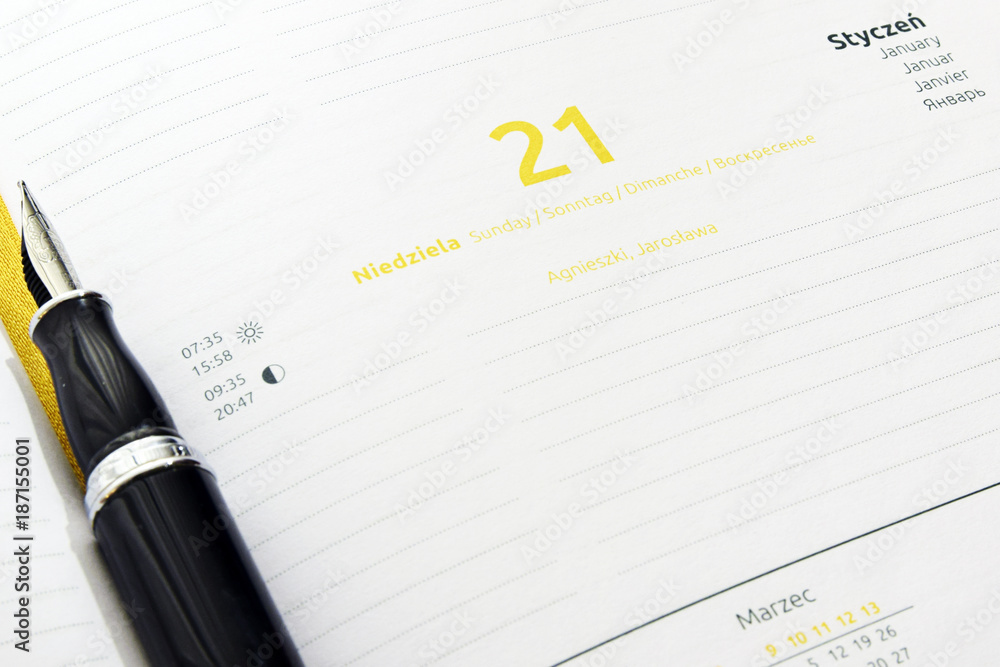 Styczeń
January
Januar
Janvier
Январь
21
Niedziela Sunday / Sonntag / Dimanche / Воскресенье
Agnieszki, Jarosława
07:35
15:58
09:35
20:47
Marzec
9 10 11 12 13
5 12 19 26
20 27
Adobe Stock | #187155001